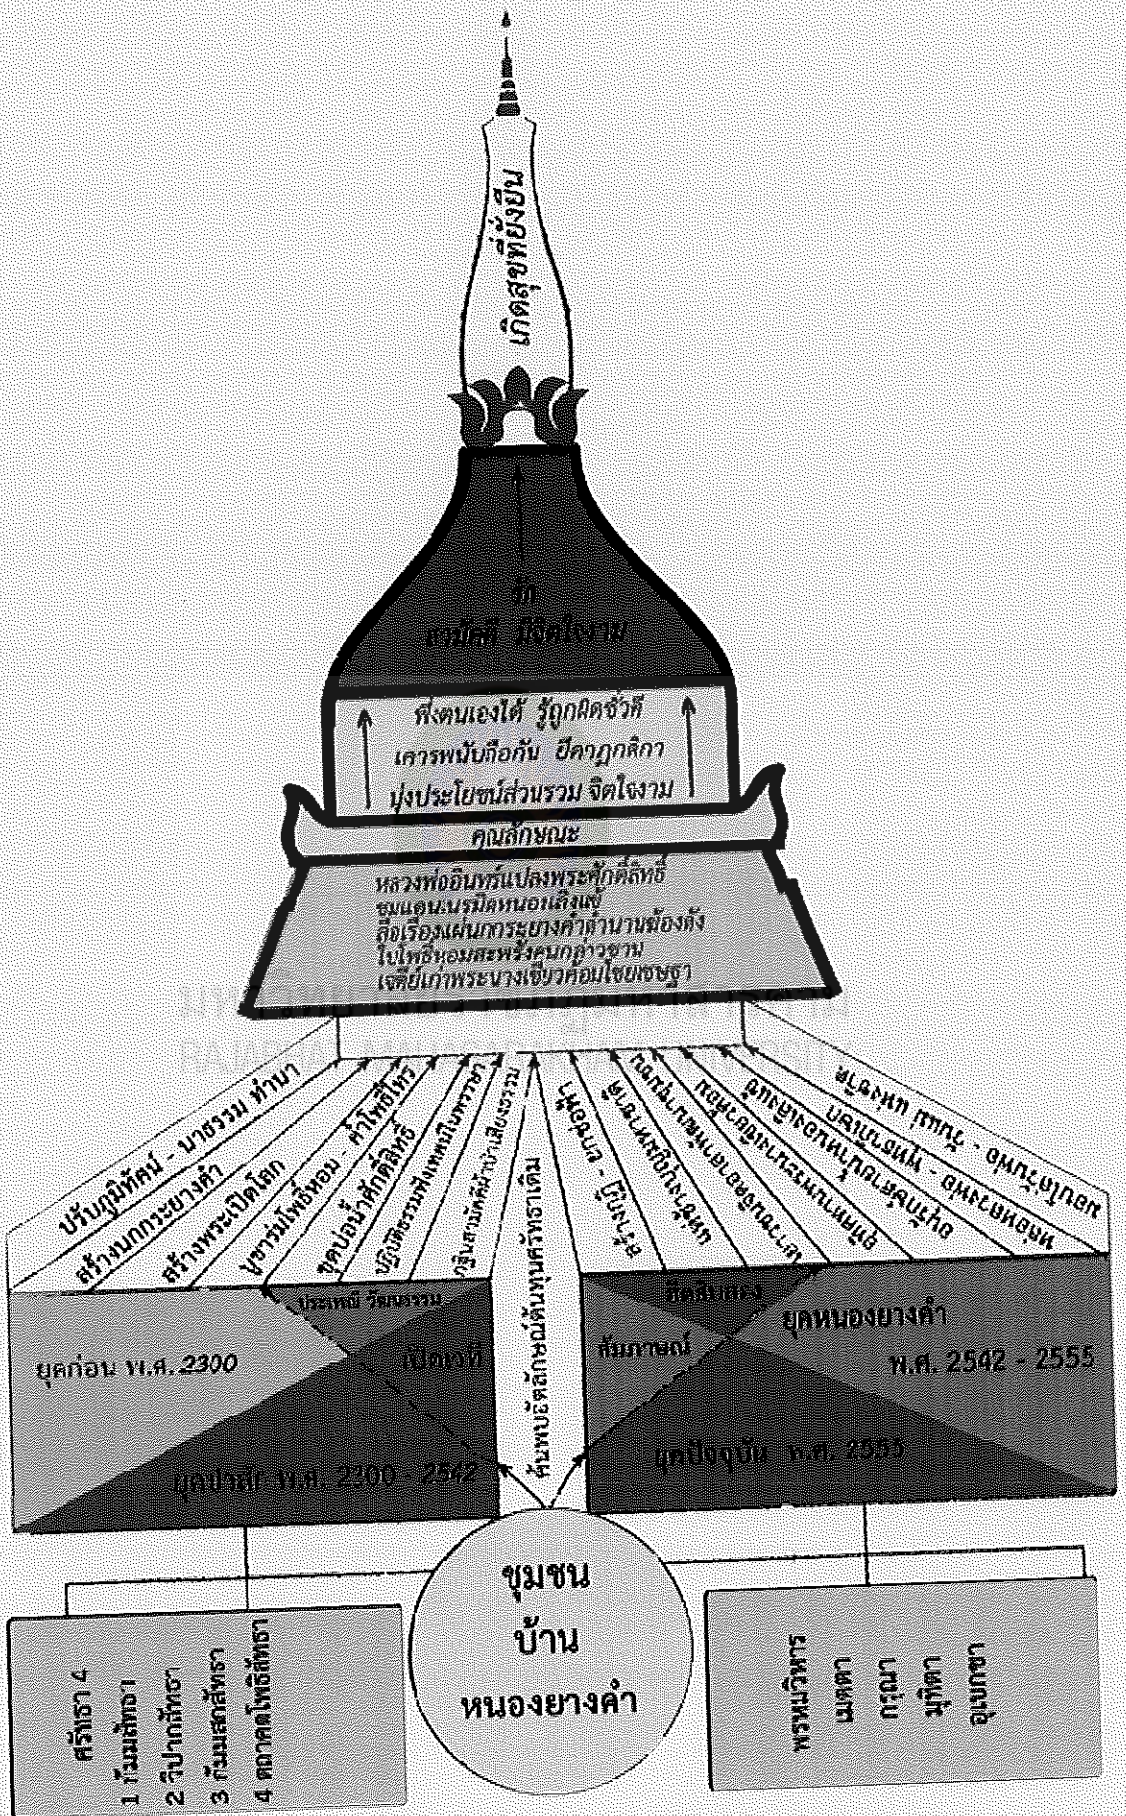 เกิดสุขที่ยั่งยืน
รัก
สามัคคี มีจิตใจงาม
พึ่งตนเองได้ รู้ถูกผิดชั่วดี
เคารพนับถือกัน ยึดกฎกติกา
มุ่งประโยชน์ส่วนรวม จิตใจงาม
คุณลักษณะ
หลวงพ่ออินทร์แปลงพระศักดิ์สิทธิ์
ชมแดนเนรมิตหนองเลิงแข้
ลือเรื่องแผ่นกกระยางคำตำนานฆ้องดัง
ใบโพธิ์หอมสะพรั่งคนกล่าวขาน
เจดีย์เก่าพระนางเขียวค้อมไชยเชษฐา
ปรับภูมิทัศน์ - นาธรรม ทำนา
สร้างนกกระยางคำ
สร้างพระเปิดโลก
บูชาร่มโพธิ์หอม - ค้ำโพธิ์ไทร
ขุดบ่อน้ำศักดิ์สิทธิ์
ปฏิบัติธรรมฟังเทศน์ในพรรษา
กฐินสามัคคีผ้าป่าเสียงธรรม
ค้นพบอัตลักษณ์ต้นทุนศรัทธาเดิม
แห่ผู้เฒ่า
หล่อหลวงพ่อ - พุทธาภิเษก
มอบโล่วันพ่อ - วันแม่ แห่งชาติ
ประเพณี วัฒนธรรม
เปิดเวที
ยุคก่อน พ.ศ. 2300
ยุคป่าสัก พ.ศ. 2300 - 2542
ฮีตสิบสอง
สัมภาษณ์
ยุคหนองยางคำ
พ.ศ. 2542 - 2555
ยุคปัจจุบัน พ.ศ. 2555
ชุมชน
บ้าน
หนองยางคำ
ศรัทธา 4
1 กัมมสัทธา
2 วิปากสัทธา
3 กัมมสกสัทธา
4 ตถาคตโพธิสัทธา
พรหมวิหาร
เมตตา
กรุณา
มุทิตา
อุเบกขา